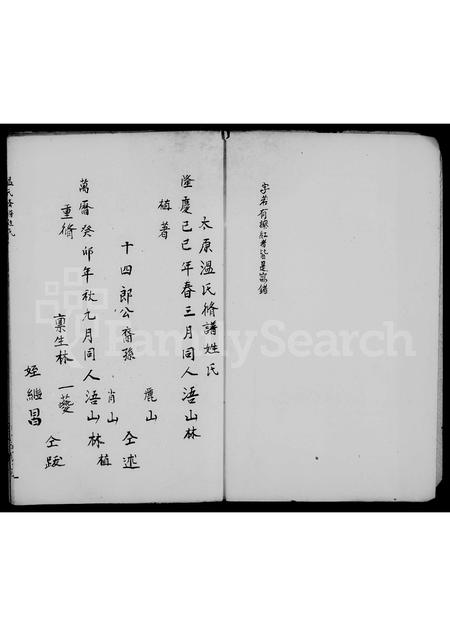 字若有擦紅者皆是寫錯
太原溫氏脩譜姓氏
隆慶己巳年春三月同人浯山林
植著
麓山
十四郎公裔孫 仝述
肖山
萬曆癸卯年秋九月同人浯山林植
重脩
稟生林一蘷
仝跋
姪繼昌
FamilySearch